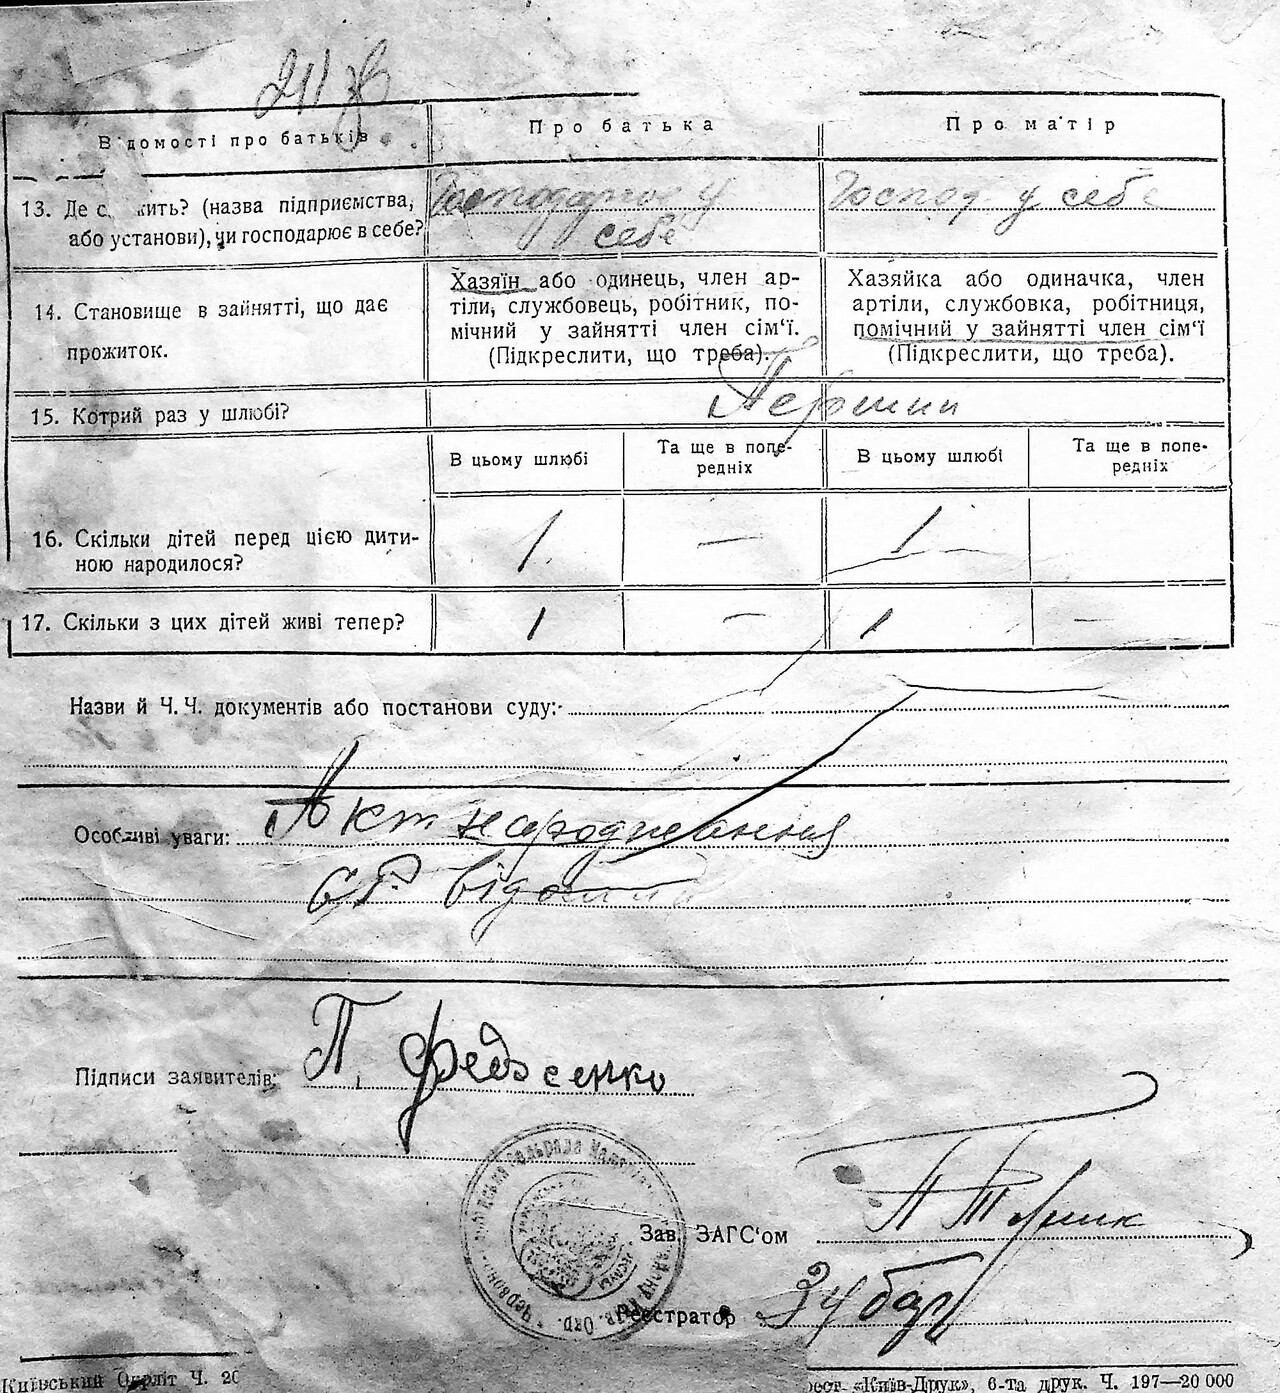 Відомості про батьків
Про батька
Про матір
13. Де с жить? (назва підприємства,
або установи), чи господарює в себе?
Господарює у
себе
Господ у себе
14. Становище в зайнятті, що дає
прожиток.
Хазяїн або одинець, член ар-
тіли, службовець, робітник, по-
мічний у зайнятті член сім‘ї.
(Підкреслити, що треба).
Хазяйка або одиначка, член
артіли, службовка, робітниця,
помічний у зайнятті член сім‘ї
(Підкреслити, що треба).
15. Котрий раз у шлюбі?
Перший
В цьому шлюбі
Та ще в попе-
редніх
В цьому шлюбі
Та ще в попе-
редніх
16. Скільки дітей перед цією дити-
ною народилося?
1 — 1
17. Скільки з цих дітей живі тепер?
1 — 1 —
Назви й Ч. Ч. документів або постанови суду:
Особливі уваги: Акт народження
Підписи заявителів: П.
Зав. ЗАГС‘ом
Реєстратор
Київський Окрліт Ч. 20
«Київ-Друк», 6-та друк. Ч. 197—20 000